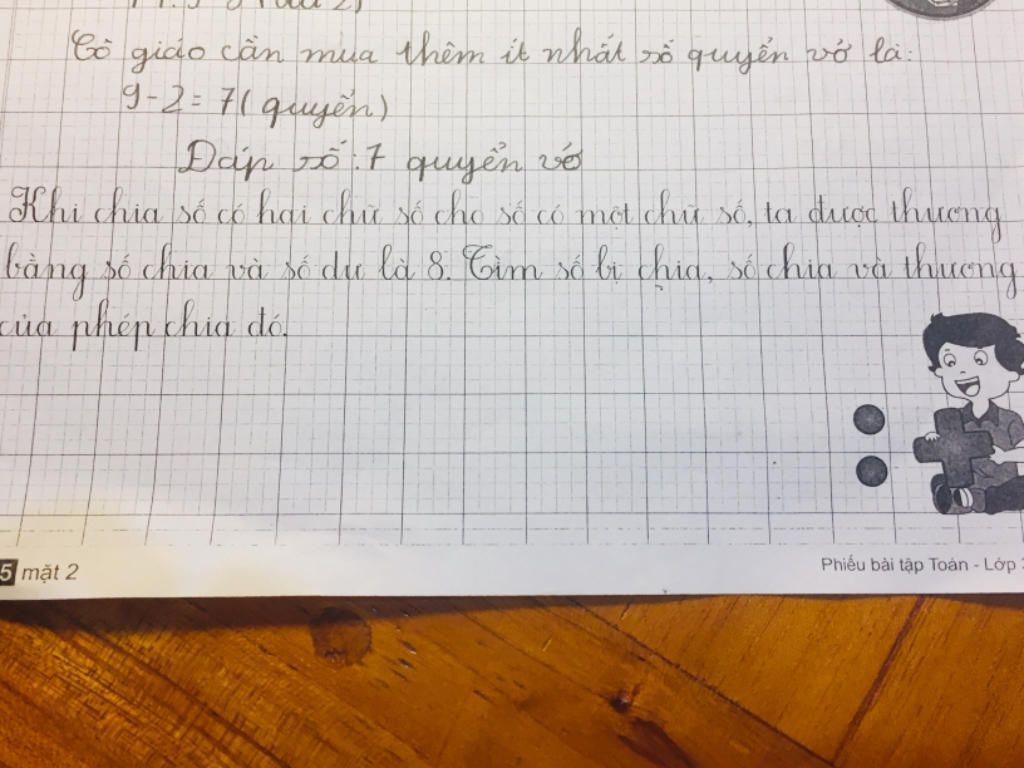 Cô giáo cần mua thêm ít nhất số quyển vở là:
9-2=7( quyển)
Đáp số:7 quyển vở
Khi chia số có hai chữ số cho số có một chữ số, ta được thương
bằng số chia và số dư là 8. Tìm số bị chia, số chia và thương
của phép chia đó.
5 mặt 2
Phiếu bài tập Toán - Lớp